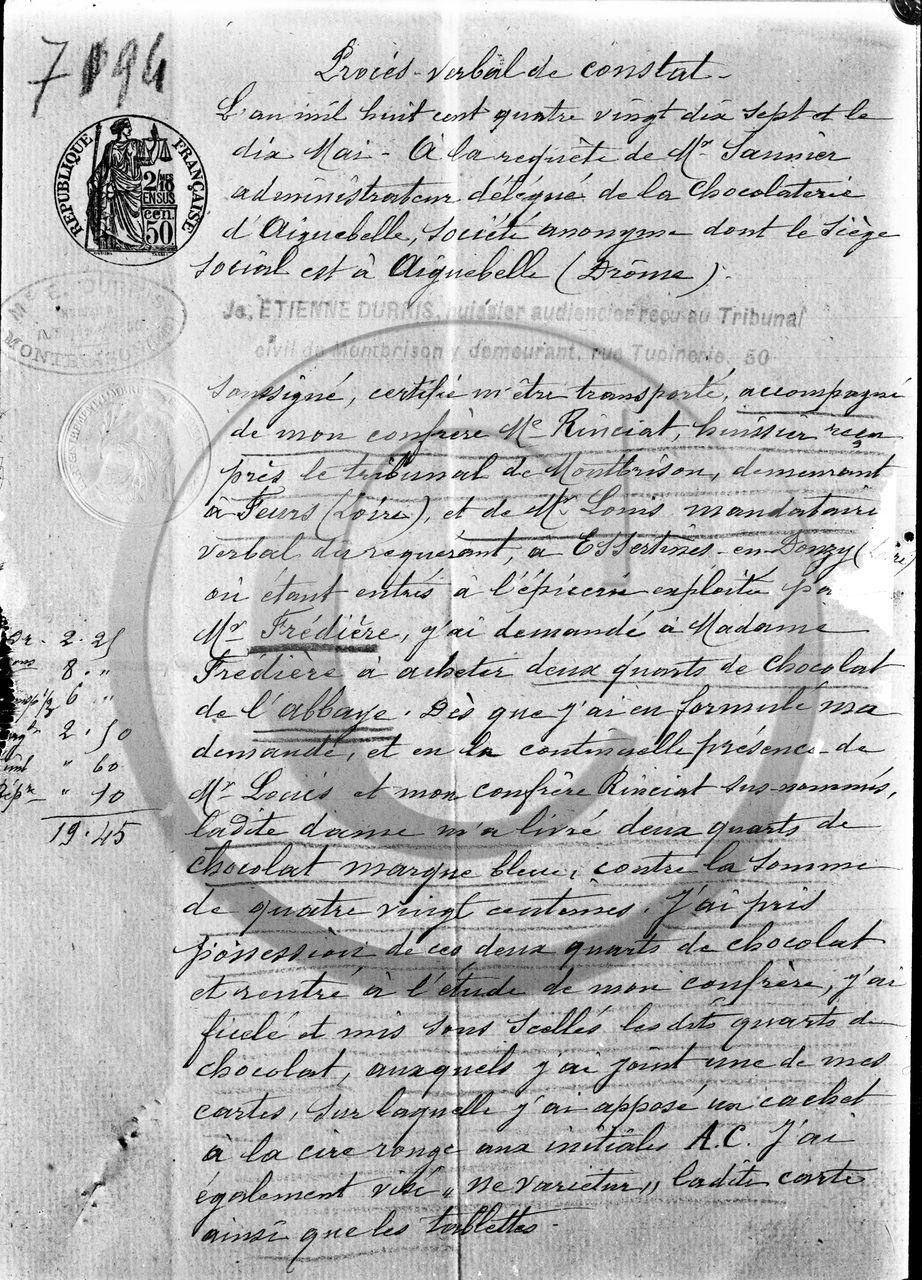 7 94
Procès-verbal de constat-
L'an mil huit cent quatre vingt dix sept et le
dix Mai - A la requête de Mr. Jannier
administrateur délégué de la Chocolaterie
d'Aiguebelle, société anonyme dont le siège
social est à Aiguebelle (Drôme).
RÉPUBLIQUE FRANÇAISE
2/10 MES
EN SUS
50 cen.
Je, ETIENNE DURRIS, huissier audiencier reçu au Tribunal
civil de Montbrison y demeurant, rue Tupinerie, 50
MONTBRISON
soussigné, certifie m'être transporté, accompagné
de mon confrère Me Rinciat, huissier reçu
près le tribunal de Montbrison, demeurant
à Feurs (Loire), et de Mr. Louis mandataire
verbal du requérant, à Essertines-en-Donzy (
où étant entrés à l'épicerie exploitée pa
Mr Frédière, j'ai demandé à Madame
Frédière à acheter deux quarts de chocolat
de l'abbaye. Dès que j'ai eu formulé ma
demande, et en la continuelle présence de
Mr Louis et mon confrère Rinciat sus-nommés,
ladite dame m'a livré deux quarts de
chocolat marque bleue, contre la somme
de quatre vingt centimes. J'ai pris
possession de ces deux quarts de chocolat
et rentré à l'étude de mon confrère, j'ai
ficelé et mis sous scellés les dits quarts de
chocolat, auxquels j'ai joint une de mes
cartes, sur laquelle j'ai apposé un cachet
à la cire rouge aux initiales A.C. J'ai
également visé "ne varietur" ladite carte
ainsi que les tablettes.
2.25
8 "
6 "
2.50
" 60
" 10
19.45